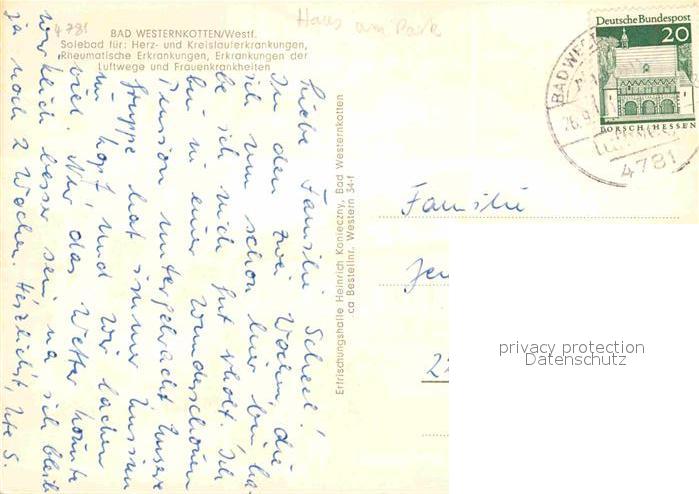 4781
Haus am Park
BAD WESTERNKOTTEN/Westf.
Solebad für: Herz- und Kreislauferkrankungen,
Rheumatische Erkrankungen, Erkrankungen der
Luftwege und Frauenkrankheiten
Liebe Familie Scheel!
In den zwei Wochen, die
ich nun schon hier bin, ha-
be ich mich gut erholt. Ich
bin in einer wunderschönen
Pension untergebracht. Unsere
Gruppe hat immer Unsinn
im Kopf, und wir lachen
viel. Nur das Wetter könnte
wirklich besser sein, na ich bleibe
ja noch 2 Wochen. Herzlichst, Ute S.
Erfrischungshalle Heinrich Konieczny, Bad Westernkotten
ca Bestellnr. Western 34-f
Deutsche Bundespost
20
LORSCH/HESSEN
BAD WE
26.9.
4781
Familie
Jen
22
privacy protection
Datenschutz